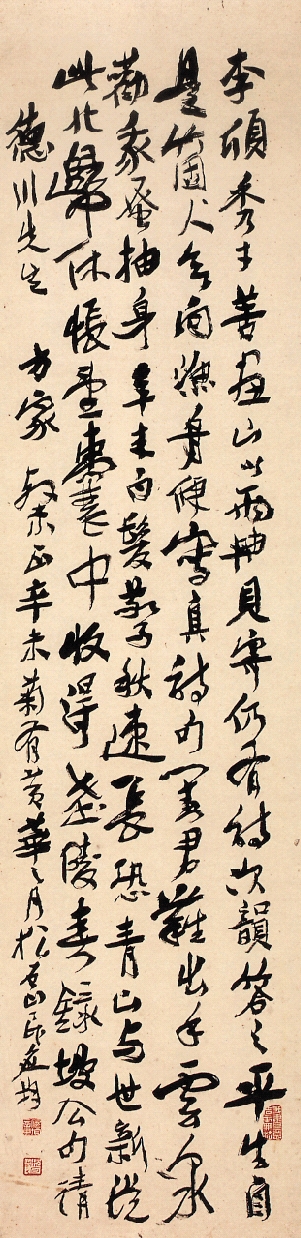 李頎秀才善畫山以兩軸見寄仍有詩次韻答之平生自
是箇人欲向漁舟便寫真詩句對君難出手雲泉
勸我蚤抽身年來白髮驚秋速長恐青山與世新從
此北歸休悵望囊中收得武陵春錄坡公句請
德川先生 方家 正辛未菊有黃華之月松石山民